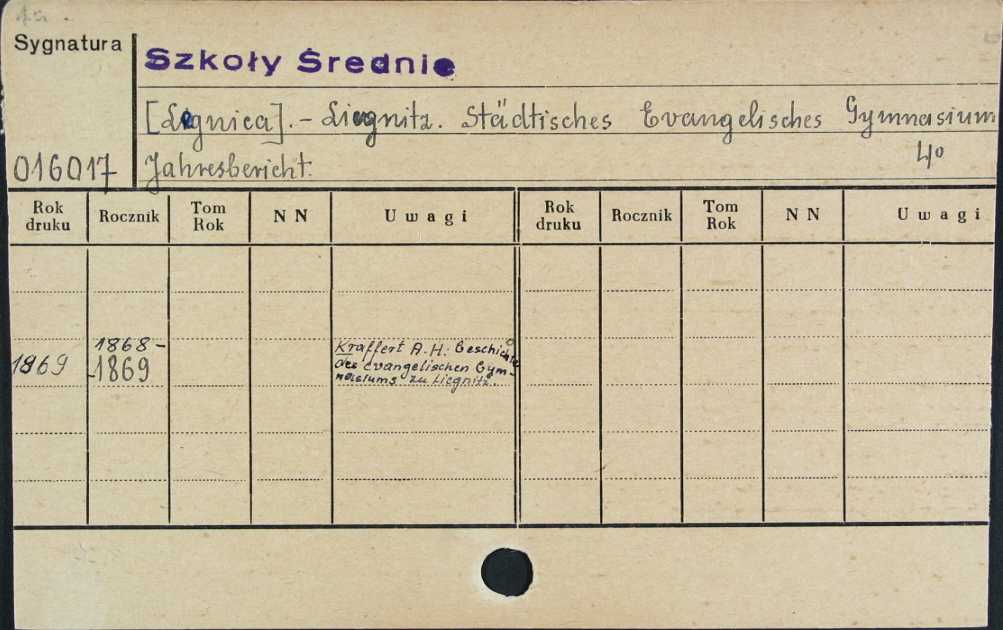 Sygnatura
Szkoły Średnie
[Legnica]. - Liegnitz. Städtisches Evangelisches Gymnasium
016017 Jahresbericht. 4°
Rok druku Rocznik Tom Rok N N Uwagi Rok druku Rocznik Tom Rok N N Uwagi
1868-
1869 -1869
Kraffert A.H.: Geschichte
des evangelischen Gym-
nasiums zu Liegnitz.